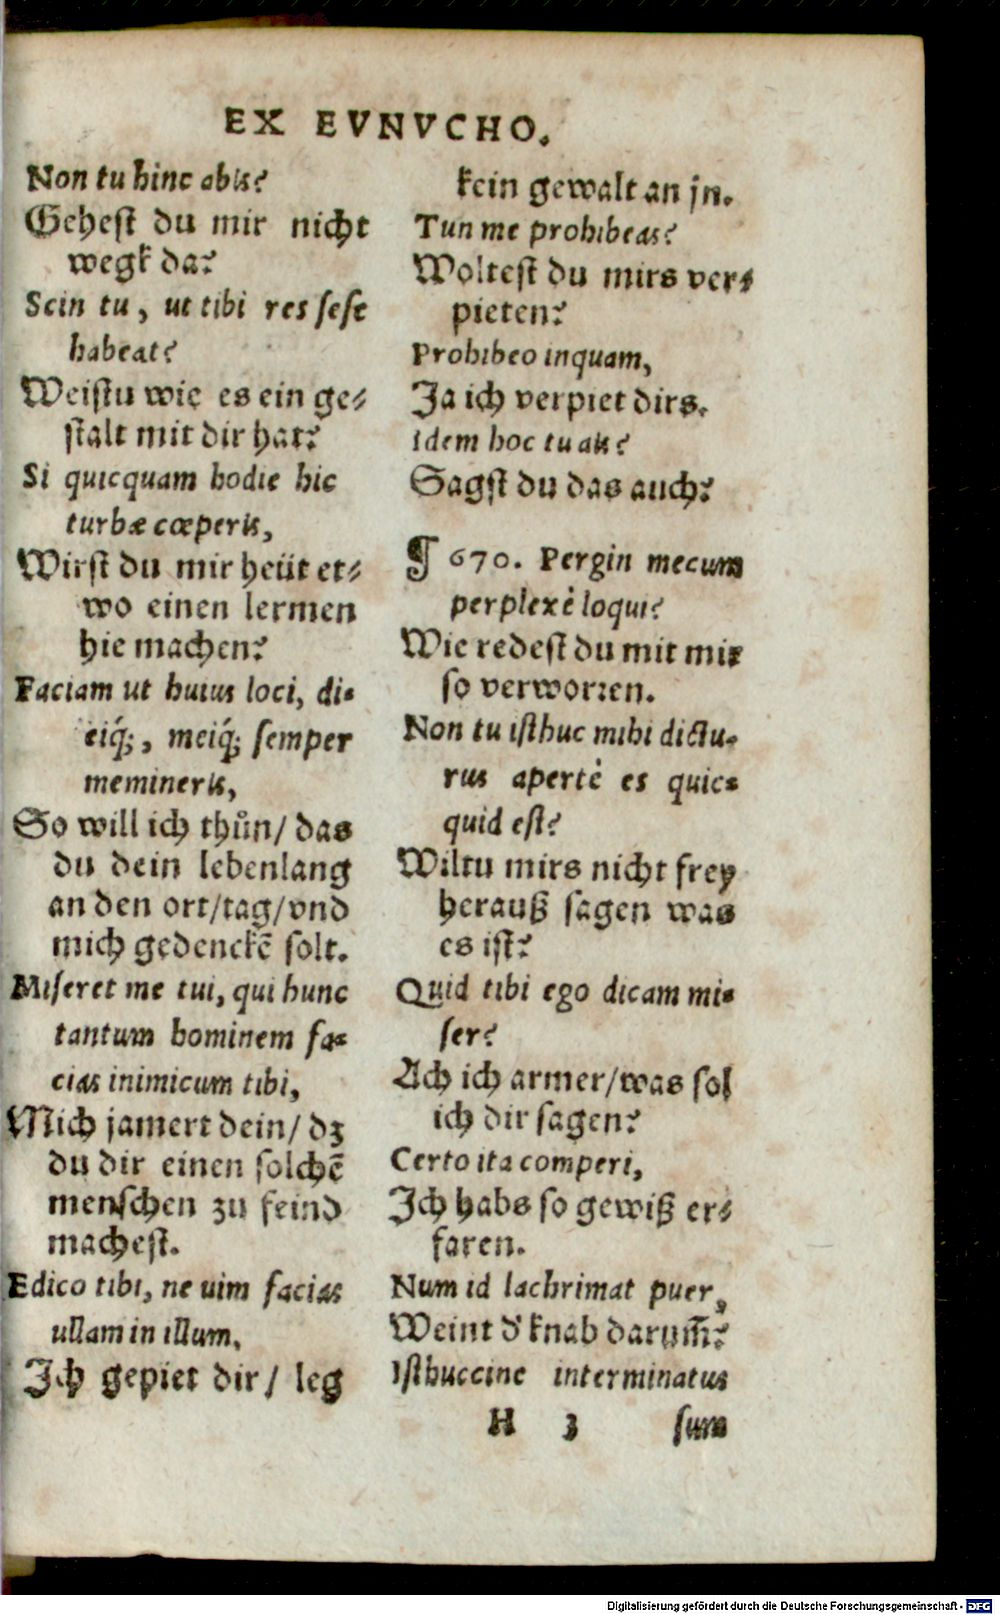 EX EVNVCHO.
Non tu hinc abis?
Gehest du mir nicht
wegk da?
Scin tu, ut tibi res sese
habeat?
Weistu wie es ein ge⸗
stalt mit dir hat?
Si quicquam hodie hic
turbæ cœperis,
Wirst du mir heüt et⸗
wo einen lermen
hie machen?
Faciam ut huius loci, di-
eiq́;, meiq́; semper
memineris,
So will ich thůn/ das
du dein lebenlang
an den ort/tag/vnd
mich gedenckē solt.
Miseret me tui, qui hunc
tantum hominem fa-
cias inimicum tibi,
Mich jamert dein/ dz
du dir einen solchē
menschen zu feind
machest.
Edico tibi, ne uim facias
ullam in illum,
Ich gepiet dir/ leg
kein gewalt an jn.
Tun me prohibeas?
Woltest du mirs ver⸗
pieten?
Prohibeo inquam,
Ja ich verpiet dirs.
idem hoc tu ais?
Sagst du das auch?
¶ 670. Pergin mecum
perplexè loqui?
Wie redest du mit mir
so verworren.
Non tu isthuc mihi dictu-
rus apertè es quic-
quid est?
Wiltu mirs nicht frey
herauß sagen was
es ist?
Quid tibi ego dicam mi-
ser?
Ach ich armer/was sol
ich dir sagen?
Certo ita comperi,
Ich habs so gewiß er⸗
faren.
Num id lachrimat puer,
Weint d' knab darum̄?
Isthuccine interminatus
H 3 sum
Digitalisierung gefördert durch die Deutsche Forschungsgemeinschaft - DFG